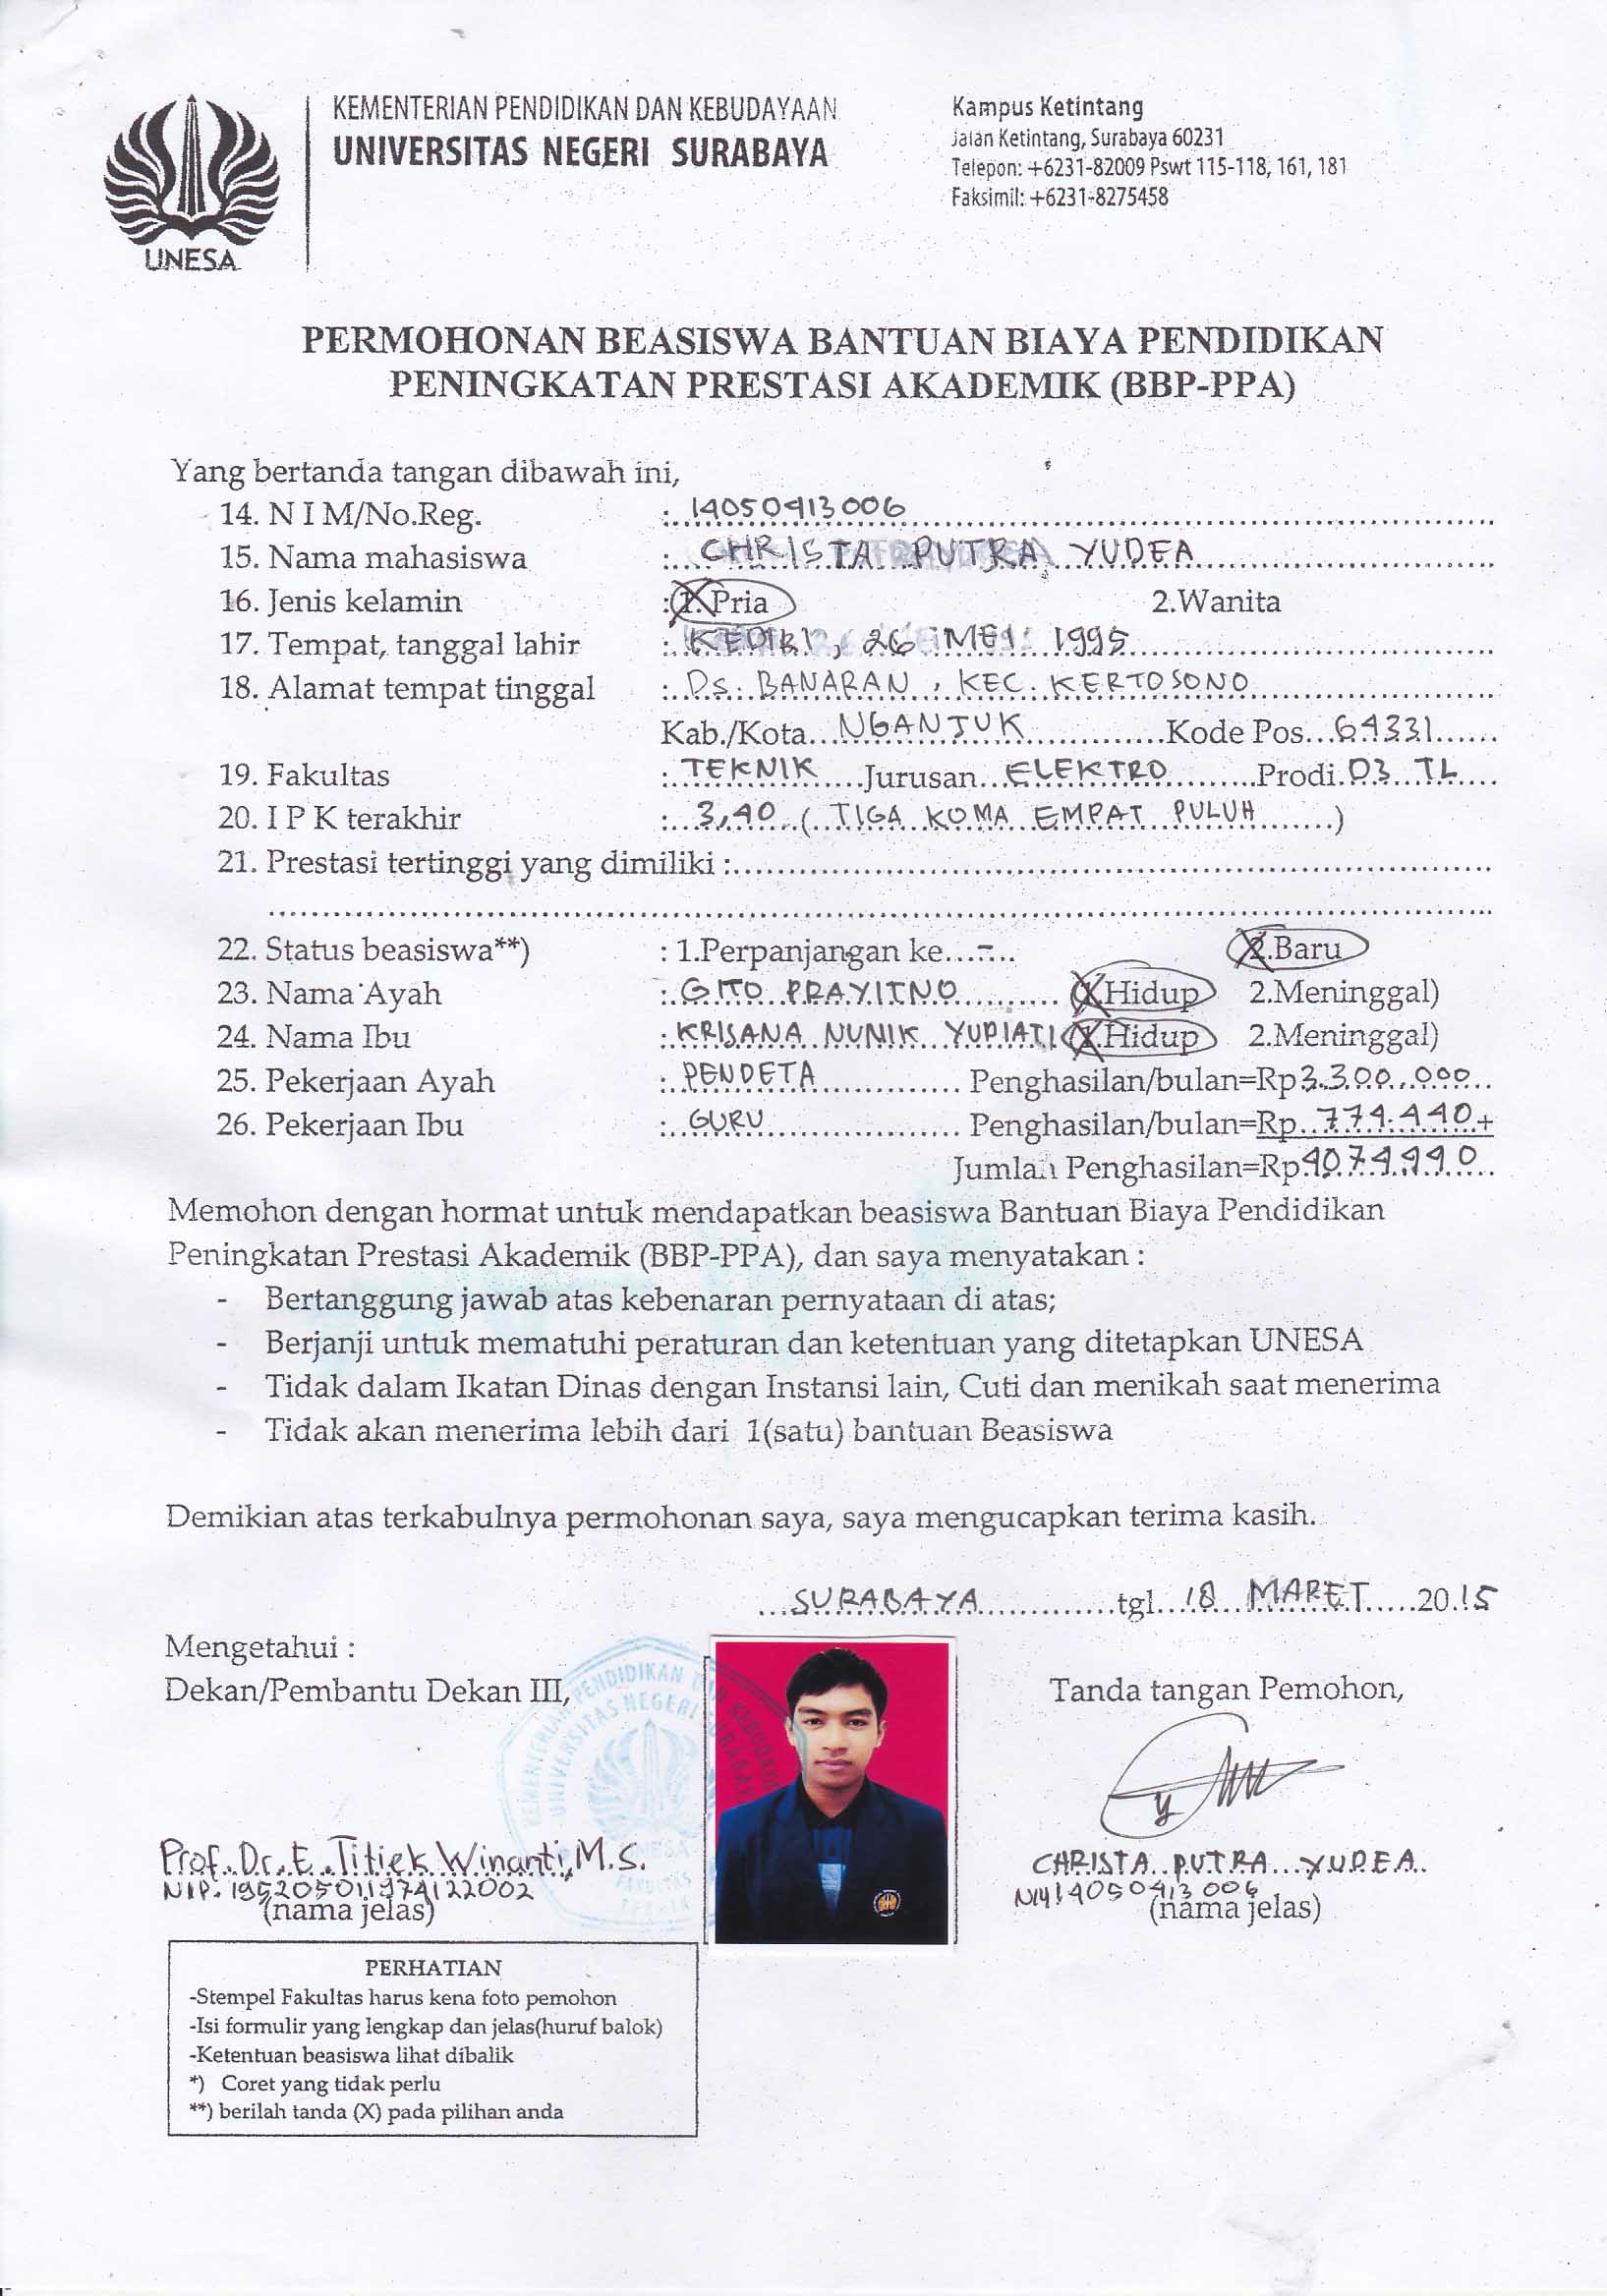 KEMENTERIAN PENDIDIKAN DAN KEBUDAYAAN
UNIVERSITAS NEGERI SURABAYA
UNESA
Kampus Ketintang
Jalan Ketintang, Surabaya 60231
Telepon: +6231-82009 Pswt 115-118, 161, 181
Faksimil: +6231-8275458
PERMOHONAN BEASISWA BANTUAN BIAYA PENDIDIKAN
PENINGKATAN PRESTASI AKADEMIK (BBP-PPA)
Yang bertanda tangan dibawah ini,
14. N I M/No.Reg. : 14050413006
15. Nama mahasiswa : CHRISTA PUTRA YUDEA
16. Jenis kelamin : 1. Pria 2.Wanita
17. Tempat, tanggal lahir : KEDIRI, 26 MEI 1995
18. Alamat tempat tinggal : Ds. BANARAN, KEC. KERTOSONO
Kab./Kota NGANJUK Kode Pos 64331
19. Fakultas : TEKNIK Jurusan ELEKTRO Prodi D3 TL
20. I P K terakhir : 3,40 (TIGA KOMA EMPAT PULUH)
21. Prestasi tertinggi yang dimiliki :
22. Status beasiswa**) : 1.Perpanjangan ke...-... 2.Baru
23. Nama Ayah : GITO PRAYITNO 1.Hidup 2.Meninggal)
24. Nama Ibu : KRISANA NUNIK YUDIATI 1.Hidup 2.Meninggal)
25. Pekerjaan Ayah : PENDETA Penghasilan/bulan=Rp 3.300.000
26. Pekerjaan Ibu : GURU Penghasilan/bulan=Rp 774.440 +
Jumlah Penghasilan=Rp 4074.440
Memohon dengan hormat untuk mendapatkan beasiswa Bantuan Biaya Pendidikan
Peningkatan Prestasi Akademik (BBP-PPA), dan saya menyatakan :
- Bertanggung jawab atas kebenaran pernyataan di atas;
- Berjanji untuk mematuhi peraturan dan ketentuan yang ditetapkan UNESA
- Tidak dalam Ikatan Dinas dengan Instansi lain, Cuti dan menikah saat menerima
- Tidak akan menerima lebih dari 1(satu) bantuan Beasiswa
Demikian atas terkabulnya permohonan saya, saya mengucapkan terima kasih.
SURABAYA tgl 18 MARET 2015
Mengetahui :
Dekan/Pembantu Dekan III,
Tanda tangan Pemohon,
Prof. Dr. E. Titiek Winanti, M.S.
NIP. 195205011974122002
(nama jelas)
CHRISTA PUTRA YUDEA
14050413006
(nama jelas)
PERHATIAN
-Stempel Fakultas harus kena foto pemohon
-Isi formulir yang lengkap dan jelas(huruf balok)
-Ketentuan beasiswa lihat dibalik
*) Coret yang tidak perlu
**) berilah tanda (X) pada pilihan anda